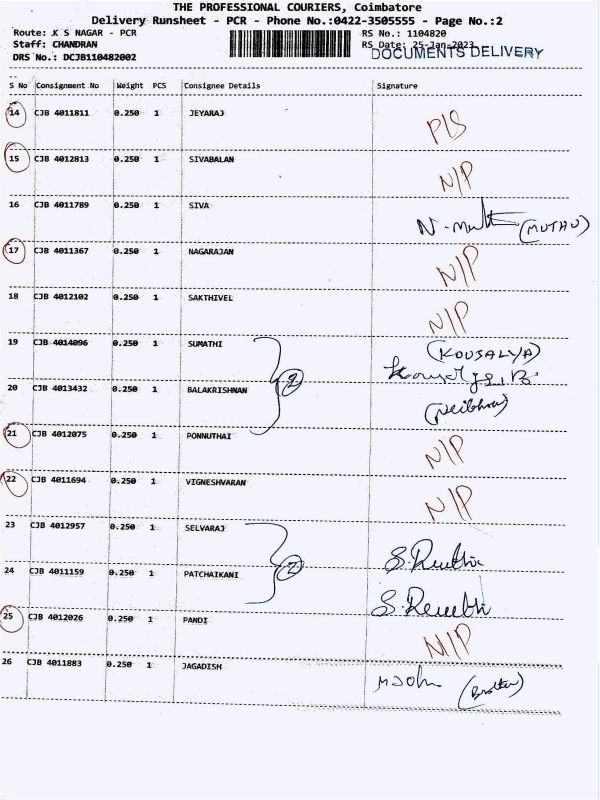 THE PROFESSIONAL COURIERS, Coimbatore
Delivery Runsheet - PCR - Phone No.:0422-3505555 - Page No.:2
Route: K S NAGAR - PCR RS No.: 1104820
Staff: CHANDRAN RS Date: 25-Jan-2023
DRS No.: DCJB110482002 DOCUMENTS DELIVERY
S No Consignment No Weight PCS Consignee Details Signature
14 CJB 4011811 0.250 1 JEYARAJ P/S
15 CJB 4012813 0.250 1 SIVABALAN N/P
16 CJB 4011789 0.250 1 SIVA (MUTHU)
17 CJB 4011367 0.250 1 NAGARAJAN N/P
18 CJB 4012102 0.250 1 SAKTHIVEL N/P
19 CJB 4014096 0.250 1 SUMATHI (KOUSALYA)
20 CJB 4013432 0.250 1 BALAKRISHNAN 2
21 CJB 4012075 0.250 1 PONNUTHAI N/P
22 CJB 4011694 0.250 1 VIGNESHVARAN N/P
23 CJB 4012957 0.250 1 SELVARAJ
24 CJB 4011159 0.250 1 PATCHAIKANI 2
25 CJB 4012026 0.250 1 PANDI N/P
26 CJB 4011883 0.250 1 JAGADISH (Brother)